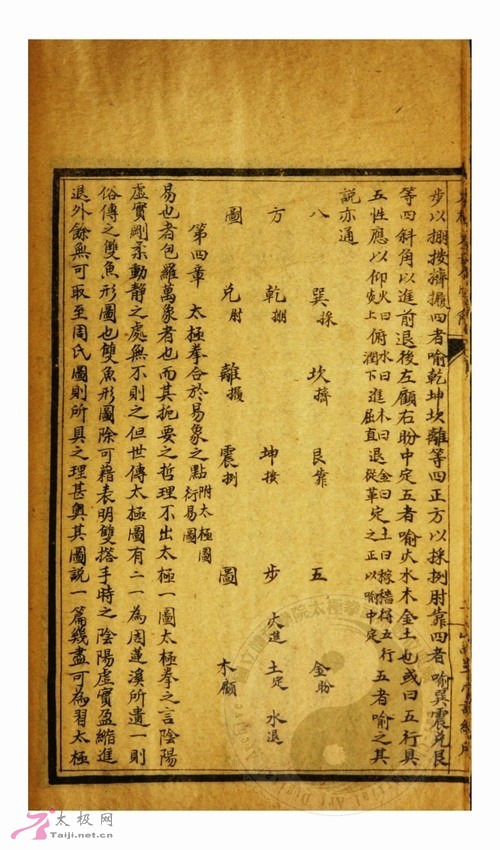 步以掤按擠攦四者喻乾坤坎離等四正方以採挒肘靠四者喻巽震兌艮
等四斜角以進前退後左顧右盼中定五者喻火水木金土也或曰五行具
五性應以仰火曰炎上俯水曰潤下進木曰屈直退金曰從革定土曰稼穡得五行之正以喻中定五者喻之其
說亦通
八 巽採 坎擠 艮靠 五 金盼
方 乾掤 坤按 步 火進 土定 水退
圖 兌肘 離攦 震挒 圖 木顧
第四章 太極拳合於易象之點 附太極圖衍易圖
易也者包羅萬象者也而其扼要之哲理不出太極一圖太極拳之言陰陽
虛實剛柔動靜之處無不則之但世傳太極圖有二一為周蓮溪所遺一則
俗傳之雙魚形圖也雙魚形圖除可藉表明雙搭手時之陰陽虛實盈縮進
退外餘無可取至周氏圖則所具之理甚奧其圖說一篇幾盡可為習太極
太极网
Taiji.net.cn